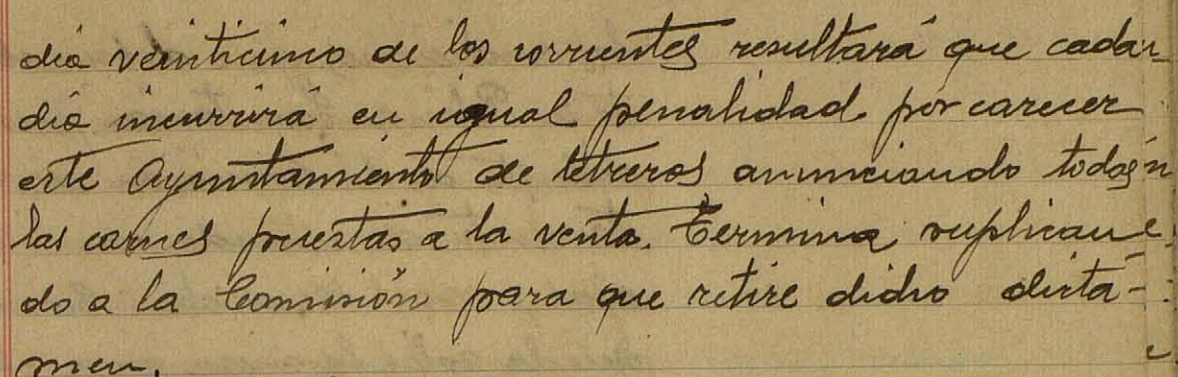 día veinticinco de los corrientes resultará que cada
día incurrirá en igual penalidad por carecer
este Ayuntamiento de letreros anunciando todas
las carnes puestas a la venta. Termina suplican
do a la Comisión para que retire dicho dicta-
men.